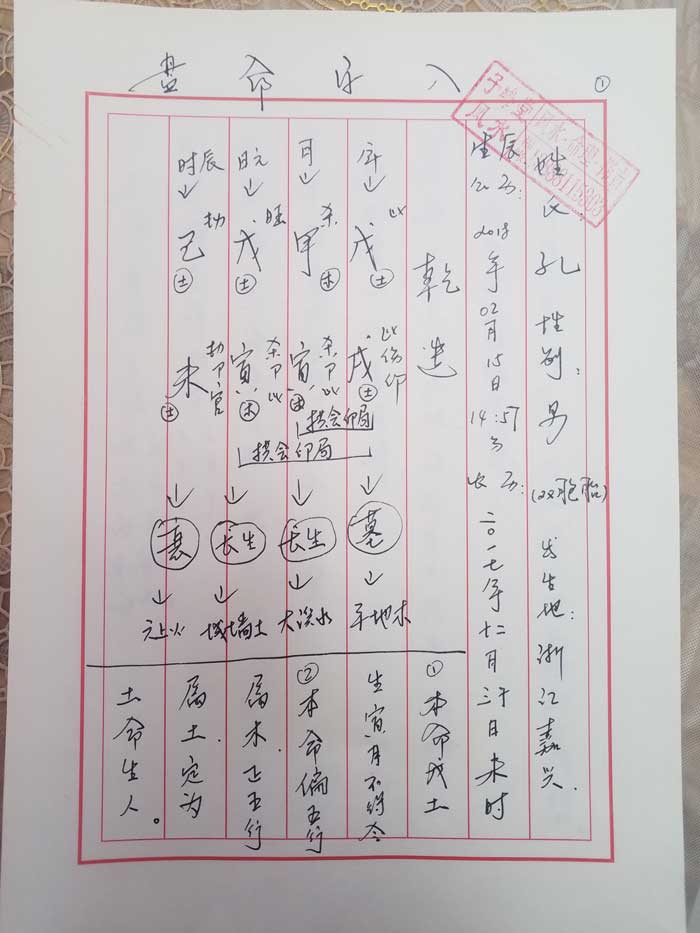 ①
八字命盘
姓氏:孔 性别:男(双胞胎) 出生地:浙江嘉兴.
生辰公历:2018年02月15日14:57分 农历:二〇一七年十二月三十日未时
乾造
年 月 日元 时辰
↓ ↓ ↓ ↓
戊 比 土
甲 杀 木
戊 旺 土
己 劫 土
戌 土 比伤印
寅 木 杀卩比
寅 木 杀卩比
未 土 劫印官
拱会印局
拱会印局
↓ ↓ ↓ ↓
墓 长生 长生 衰
↓ ↓ ↓ ↓
平地木 大溪水 城墙土 天上火
①本命戊土
生寅月不得令
②本命偏五行
属木.正五行
属土.定为
土命生人。
风水